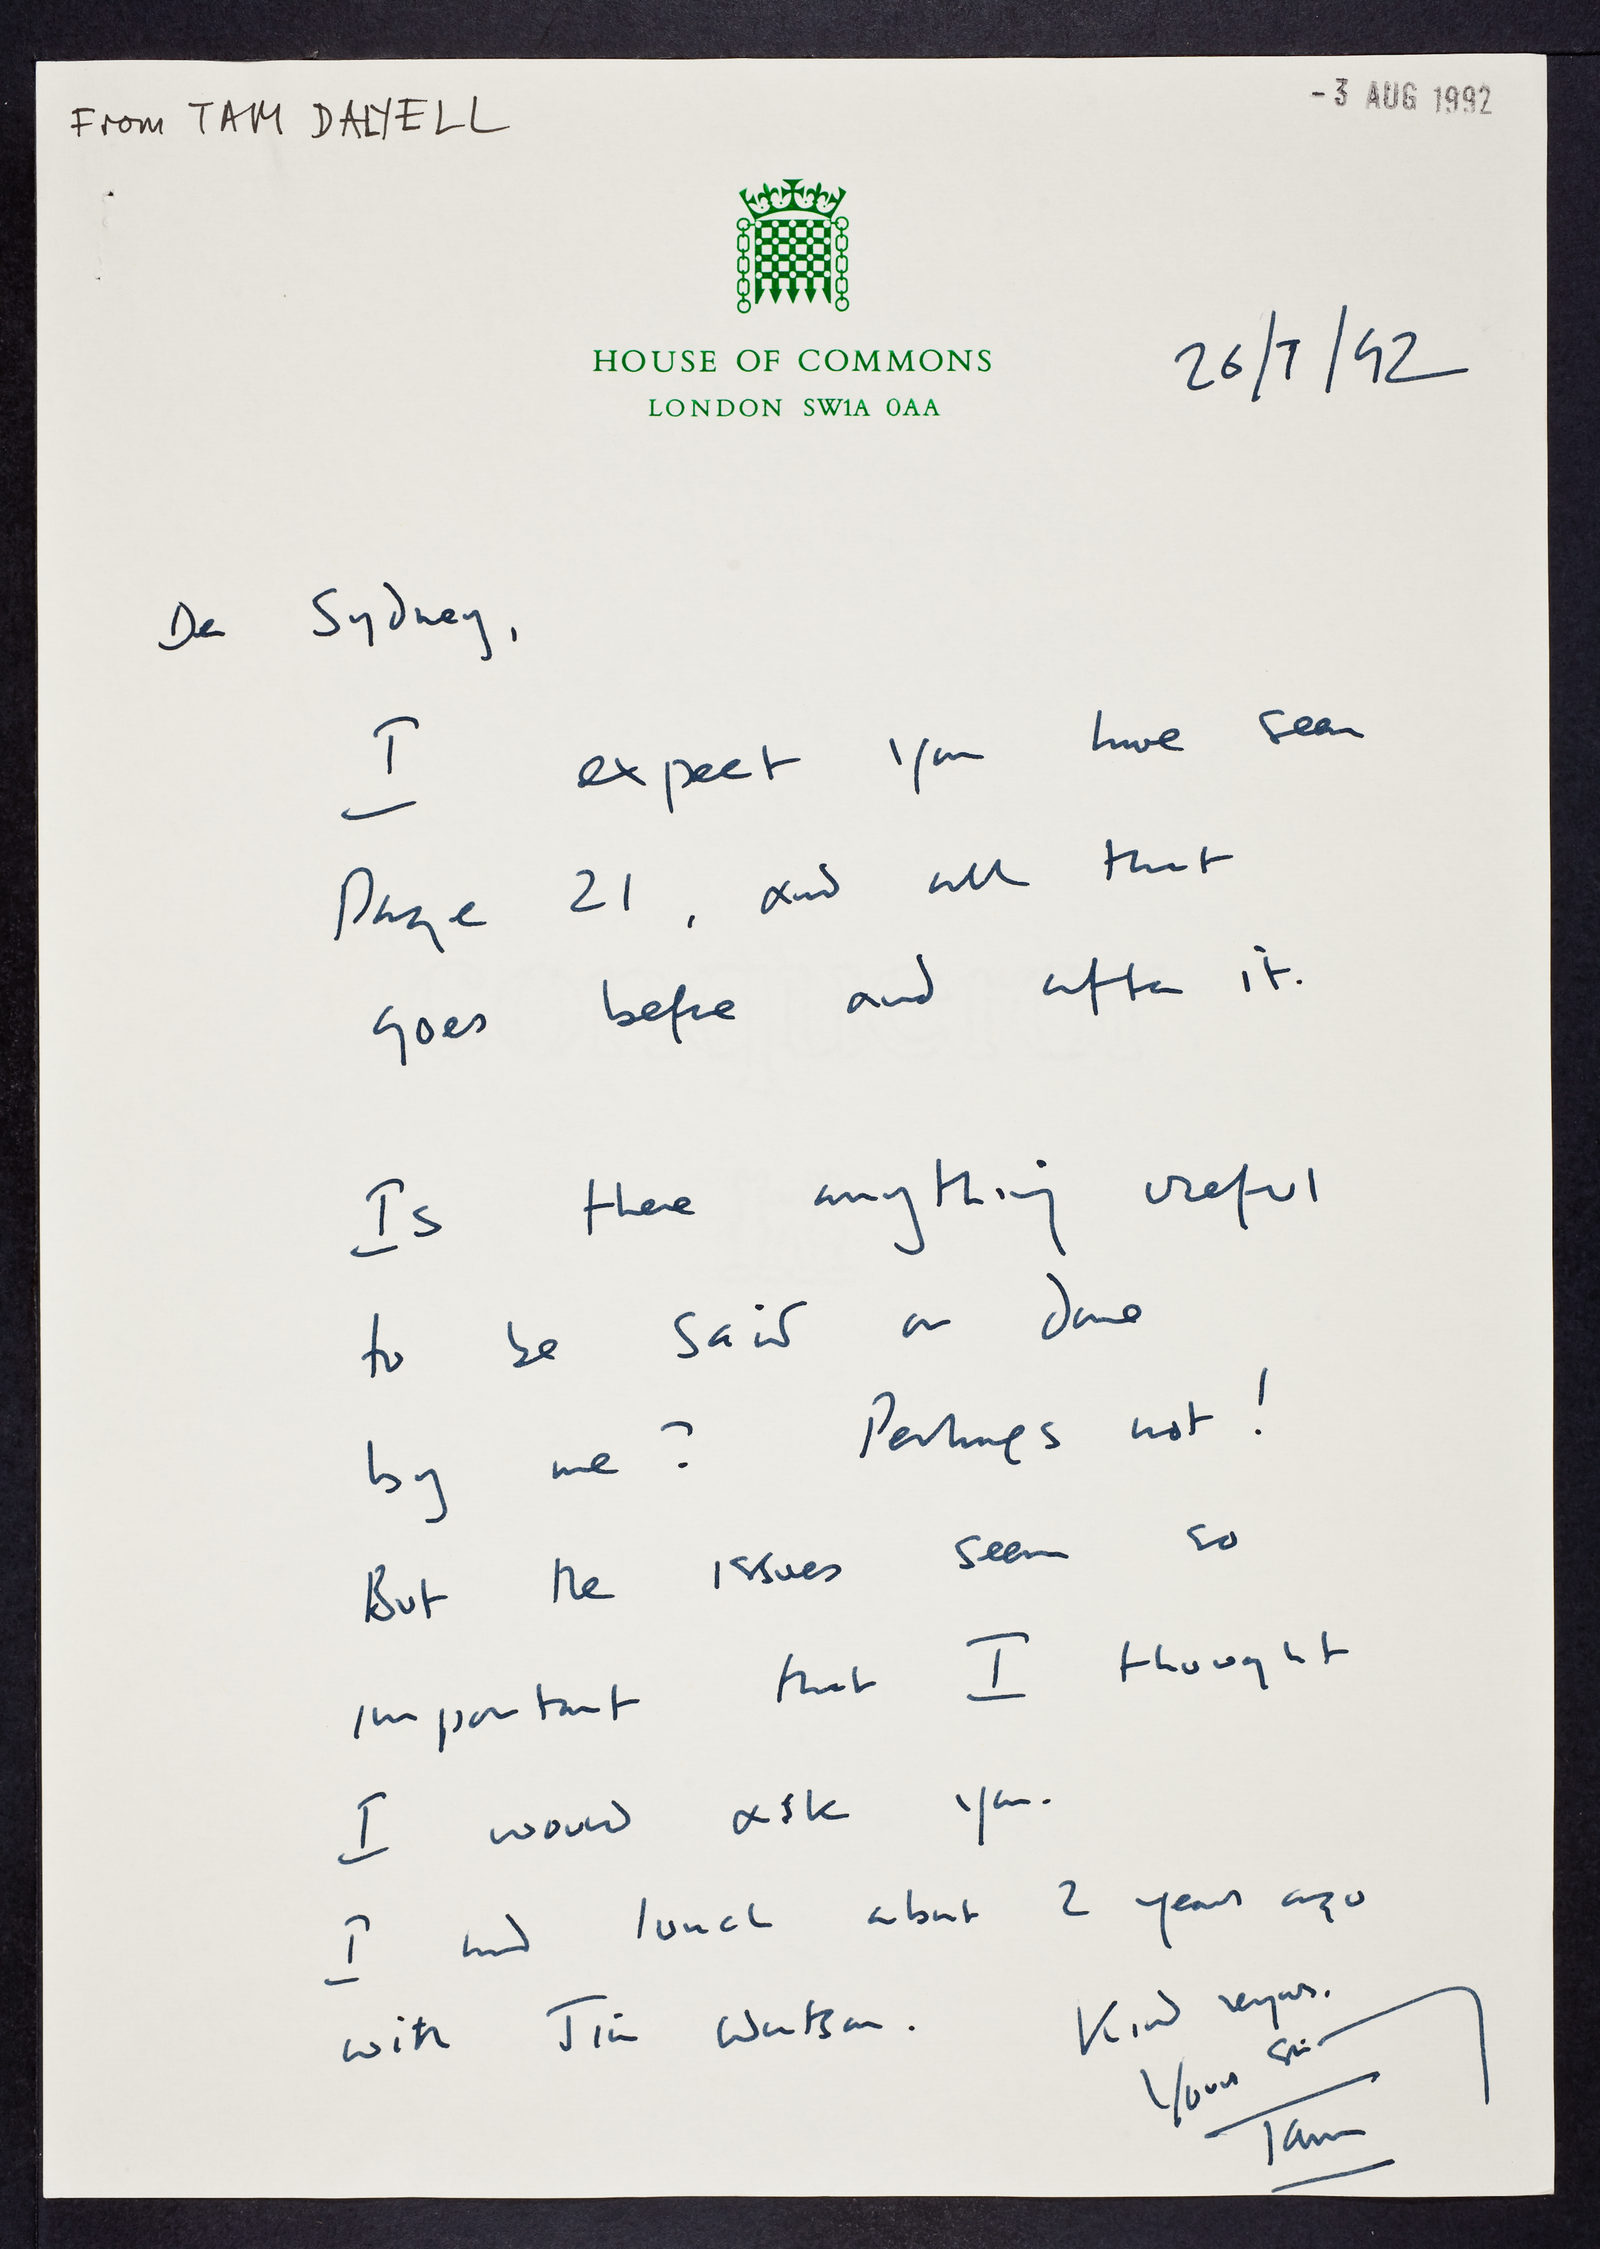 From TAM DALYELL
- 3 AUG 1992
HOUSE OF COMMONS
LONDON SW1A 0AA
26/7/92
Dear Sydney,
I expect you have seen
Page 21, and all that
goes before and after it.
Is there anything useful
to be said or done
by me? Perhaps not!
But the issues seem so
important that I thought
I would ask you.
I had lunch about 2 years ago
with Jim Watson. Kind regards.
Yours sin
Tam